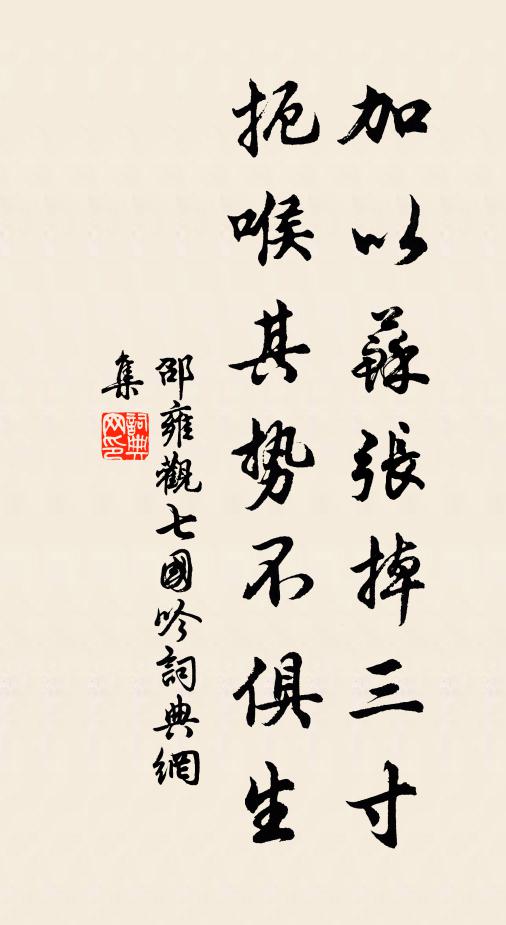 加以蘇張掉三寸
扼喉其勢不俱生
邵雍觀七國吟詞典網
集
詞典
网印